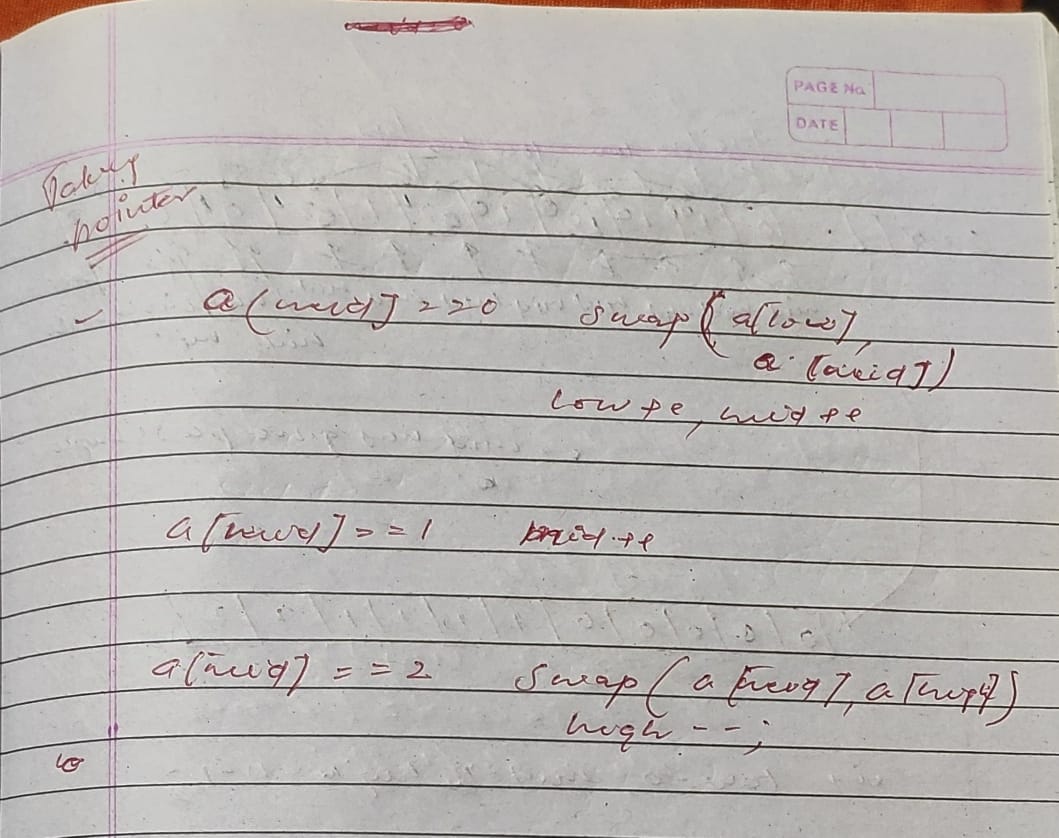 PAGE No.
DATE
Taking
pointer
a[mid] == 0 swap(a[low],
a[mid])
low ++, mid ++
a[mid] == 1 mid ++
a[mid] == 2 swap(a[mid], a[high])
high --;